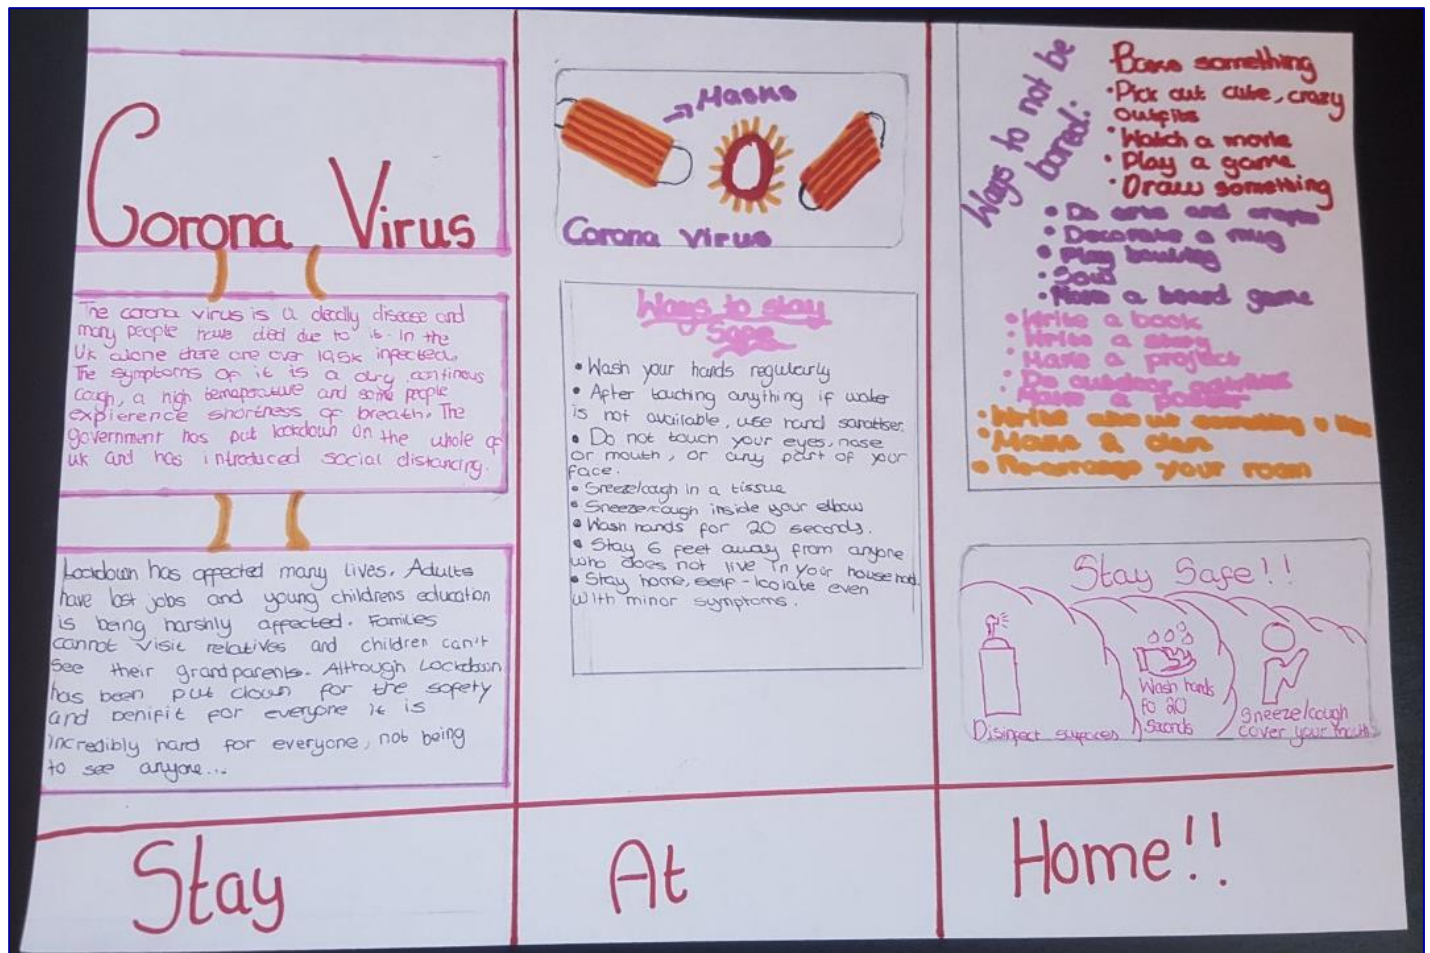 Corona Virus
The corona virus is a deadly disease and
many people have died due to it. In the
UK alone there are over 195k infected.
The symptoms of it is a dry continous
cough, a high temaperature and some people
expierence shortness of breath. The
government has put lockdown on the whole of
uk and has introduced social distancing.
Lockdown has affected many lives. Adults
have lost jobs and young childrens education
is being harshly affected. Families
cannot visit relatives and children can't
see their grandparents. Although Lockdown
has been put down for the safety
and benifit for everyone it is
incredibly hard for everyone, not being
to see anyone...
Stay
Masks
Corona virus
Ways to stay
Safe
• Wash your hands regularly
• After touching anything if water
is not available, use hand sanatiser.
• Do not touch your eyes, nose
or mouth, or any part of your
face.
• Sneeze/cough in a tissue
• Sneeze/cough inside your elbow
• Wash hands for 20 seconds.
• Stay 6 feet away from anyone
who does not live in your household.
• Stay home, self-isolate even
with minor symptoms.
At
Ways to not be
bored:
something
• Pick out cute, crazy
outfits
• Watch a movie
• Play a game
• Draw something
• Do arts and crafts
• Decorate a mug
• Play bowling
•
• Make a board game
• Write a book
• Write a story
• Make a project
• Do outdoor activities
• Make a poster
• Write about something u like
• Make a den
• Re-arrange your room
Stay Safe!!
Disinfect surfaces
Wash hands
fo 20
Seconds
Sneeze/cough
cover your mouth.
Home!!